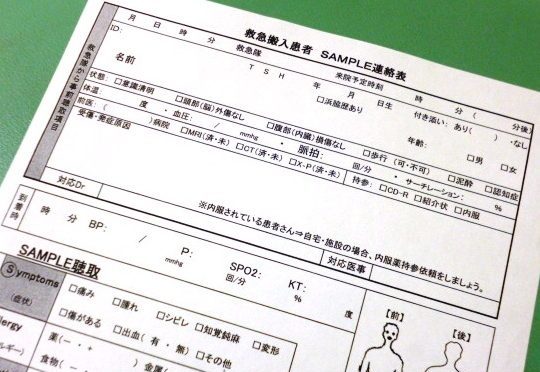 救急搬入患者 SAMPLE連絡表
月 日 時 分 救急隊 来院予定時刻 時 分 ( 分後)
ID:
T S H 年 月 日生 付き添い: あり( )・なし
名前 □浜脇歴あり 年齢: □男 □女
救急隊から事前聴取項目
状態: □意識清明 □頭部(脳)外傷なし □腹部(内臓)損傷なし □歩行 (可・不可) □泥酔 □認知症
体温: 度 ・血圧: / mmHg ・ 脈拍: 回/分 ・ サーチレーション: %
前医: ( )病院 □MRI(済・未) □CT(済・未) □X-P(済・未) 持参: □CD-R □紹介状 □内服
受傷・発症原因
※内服されている患者さん⇒自宅・施設の場合、内服薬持参依頼をしましょう。
対応Dr 対応医事
到着時 時 分 BP: / mmHg P: 回/分 SPO2: % KT: 度
SAMPLE聴取
Symptoms
(症状)
□痛み □腫れ □シビレ □知覚鈍麻 □変形
□傷がある □出血( 有 ・ 無) □その他
llergy
ルギー)
薬(－ ・ +
食物( － 金属(
【前】
【後】